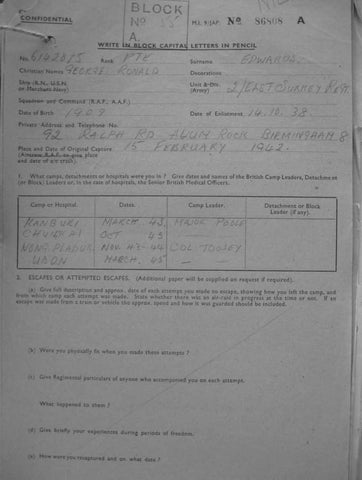 CONFIDENTIAL
BLOCK
No 55
A.
M.I. 9/JAP. No 86808 A
WRITE IN BLOCK CAPITAL LETTERS IN PENCIL
No. 6142015 Rank PTE Surname EDWARDS.
Christian Names GEORGE RONALD Decorations
Ship (R.N., U.S.N. or Merchant Navy) Unit & Div. (Army) 2/EAST SURREY REGT.
Squadron and Command (R.A.F., A.A.F.)
Date of Birth 1909 Date of Enlistment 14.10.38
Private Address and Telephone No.
92, RALPH RD ALUM ROCK BIRMINGHAM 8
Place and Date of Original Capture 15 FEBRUARY 1942.
(Aircrew R.A.F. to give place
and date of a/c crash).
1. What camps, detachments or hospitals were you in? Give dates and names of the British Camp Leaders, Detachment
(or Block) Leaders or, in the case of hospitals, the Senior British Medical Officers.
Camp or Hospital. Dates. Camp Leader. Detachment or Block Leader (if any).
KANBURI MARCH 43. MAJOR POOLE
OCT 43 —
NONG PLADUK NOV 43-44 COL TOOSEY
UBON MARCH. 45 —
2. ESCAPES OR ATTEMPTED ESCAPES. (Additional paper will be supplied on request if required).
(a) Give full description and approx. date of each attempt you made to escape, showing how you left the camp, and
from which camp each attempt was made. State whether there was an air-raid in progress at the time or not. If an
escape was made from a train or vehicle the approx. speed and how it was guarded should be included.
(b) Were you physically fit when you made these attempts?
(c) Give Regimental particulars of anyone who accompanied you on each attempt.
What happened to them?
(d) Give briefly your experiences during periods of freedom.
(e) How were you recaptured and on what date?